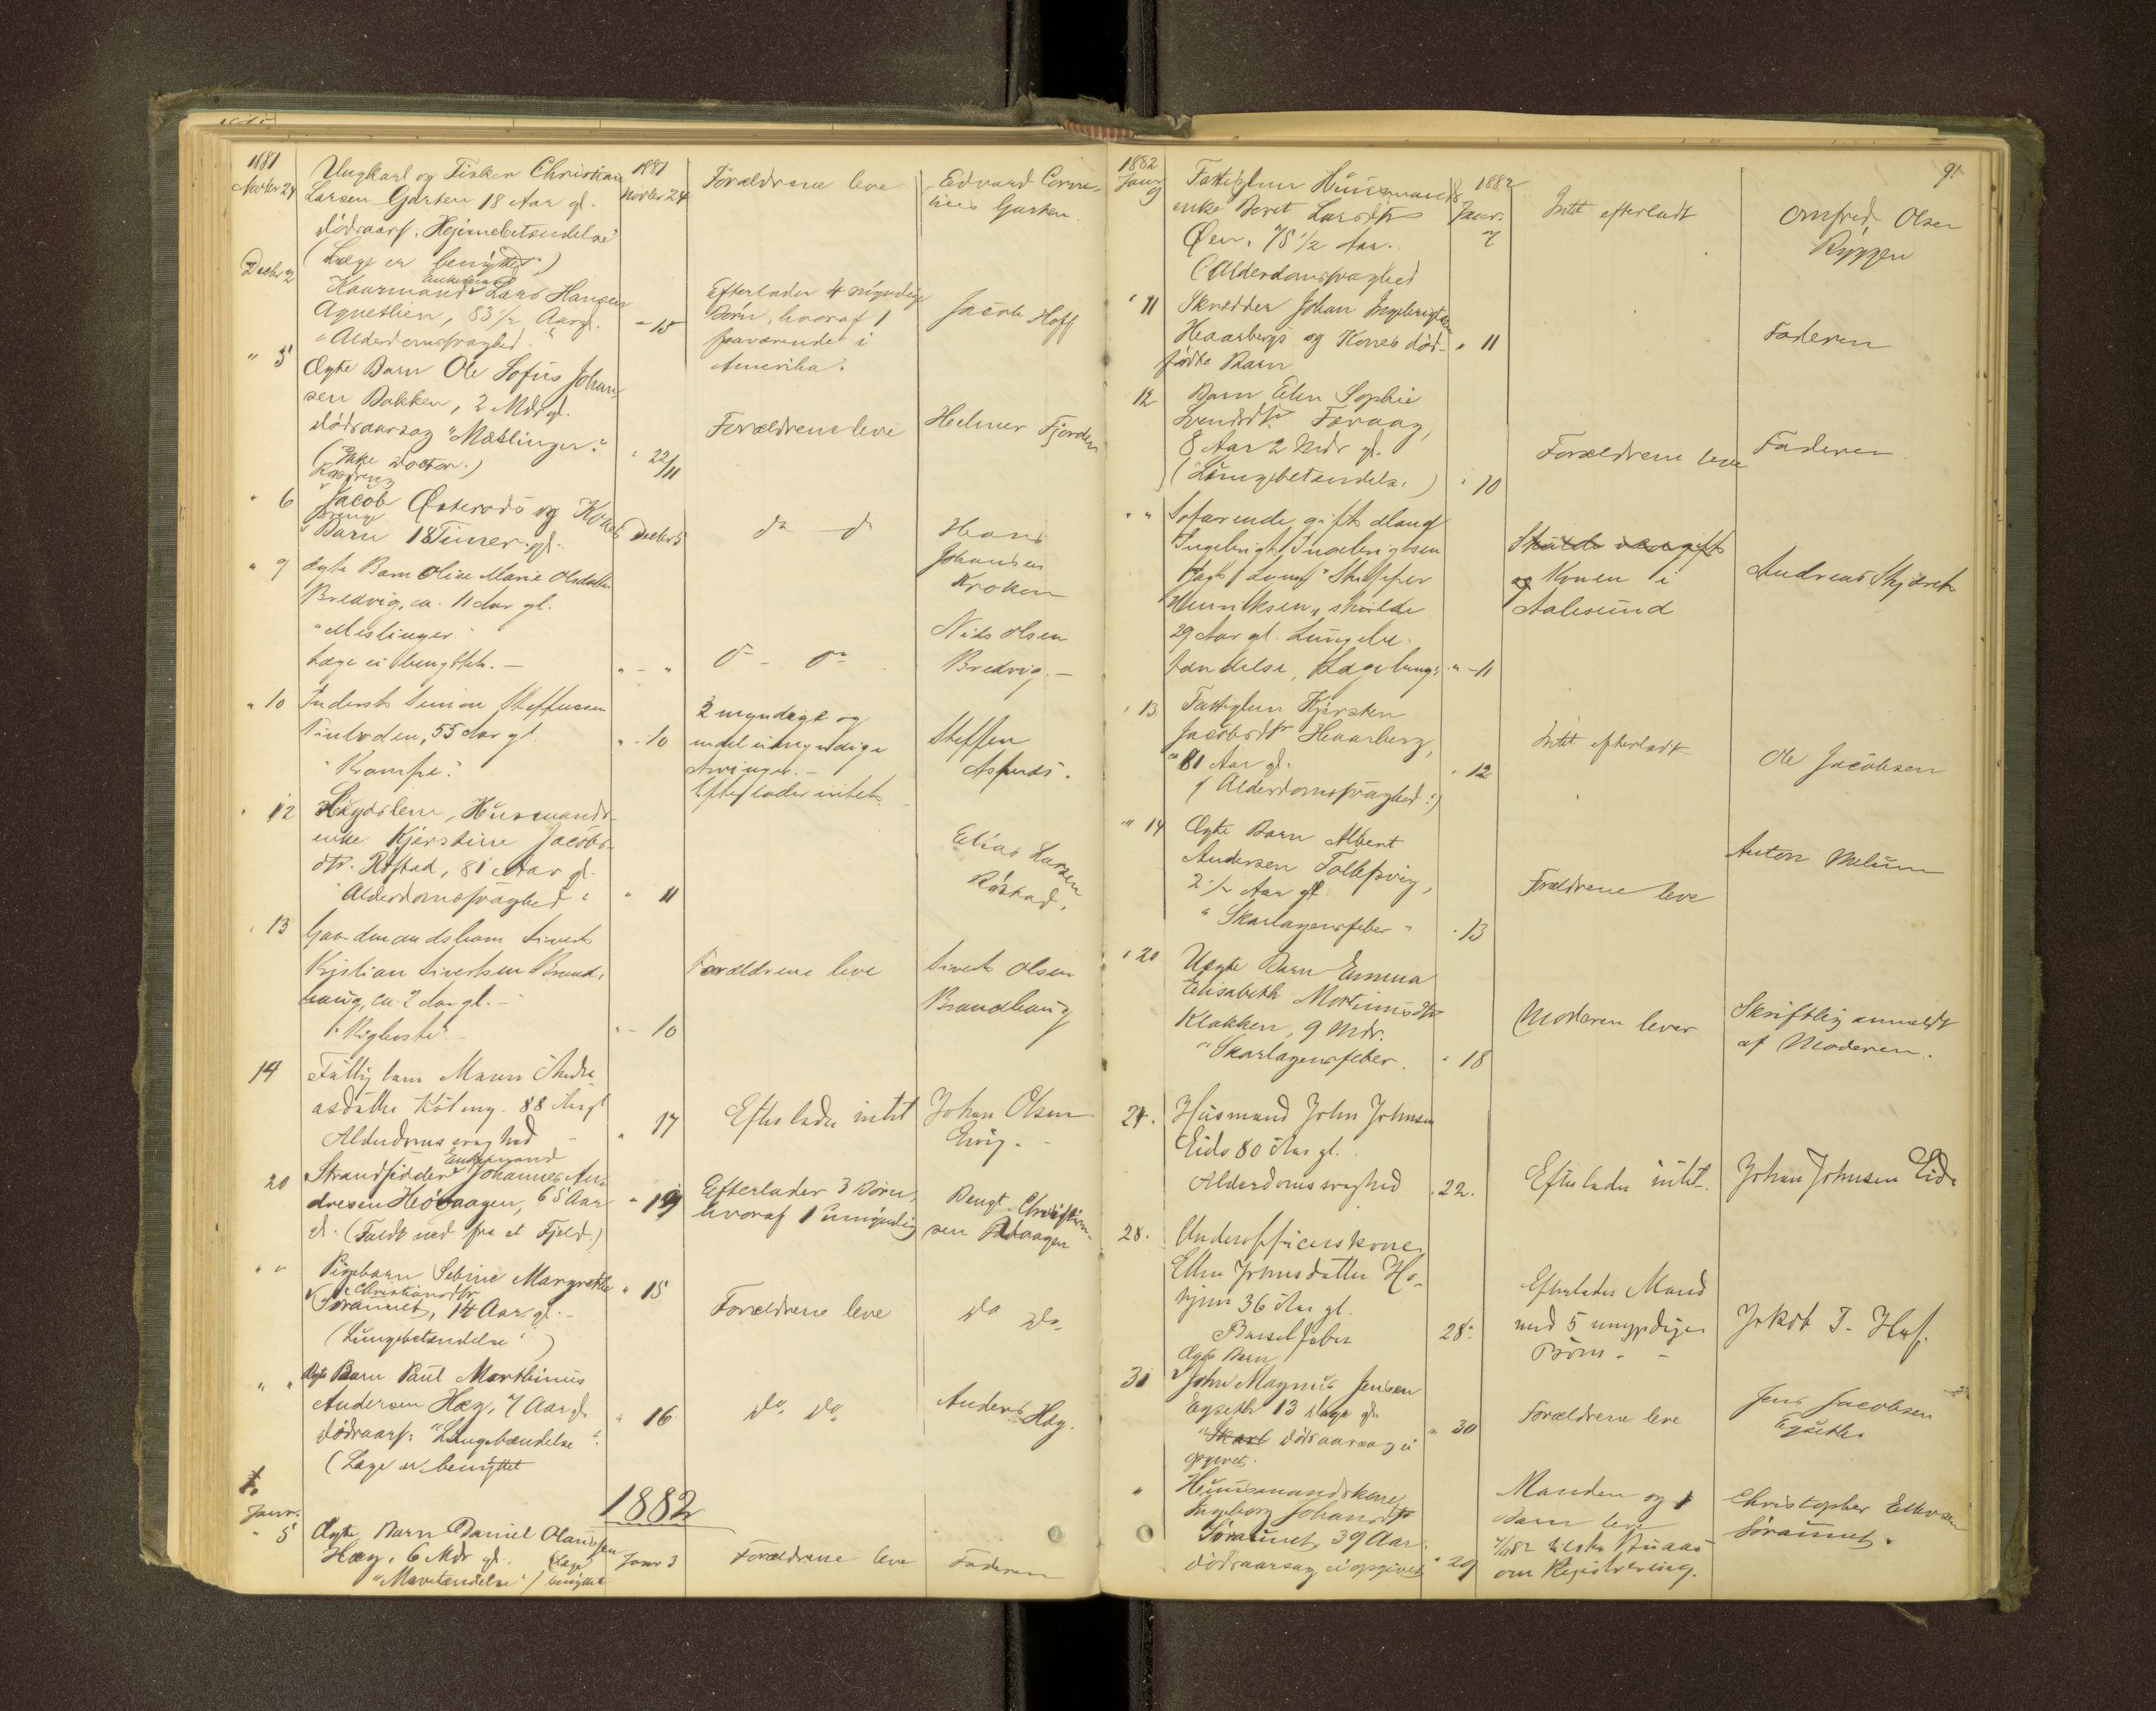 1881
Novbr 24
Ungkarl og Fisker Christian
Larsen Garten 18 Aar gl.
dödsaars. Hjernebetændelse"
(Læge er benyttet)
1881
Novbr 24
Forældrene leve
Edvard Corne-
lius Garten.
Decbr 2
Enkemand
Kaarmand Lars Hansen
Agnetlien, 83 1/2 Aar gl.
"Alderdomssvaghed."
- 15
Efterlader 4 myndige
Börn, hvoraf 1
fraværende i
Amerika.
Jacob Hoff
" 5
Ægte Barn Ole Sofus Johan-
sen Bakken, 2 Mdr gl.
dödsaarsag "Mæslinger."
(Ikke Doctor.)
" 22/11
Forældrene leve
Helmer Fjorden
" 6
Jacob Österaas og Kones
Barn 18 Timer gl.
Decbr 5
do do
Hans
Johansen
Kroken
" 9
Ægte Barn Oline Marie Olsdatter
Bredvig, ca. 11 Aar gl.
"Meslinger."
Læge ei benyttet. -
" - "
do - do
Nils Olsen
Bredvig. -
" 10
Inderst Simon Steffensen
55 Aar gl.
"Krampe."
" - 10
2 myndige og
endel umyndige
Arvinger. -
Efterlader intet
Steffen
" 12
Lægdslem, Husmands-
enke Kjerstine Jacobs-
dtr. Röstad, 81 Aar gl.
"Alderdomssvaghed"
" 11
Elias Larsen
Röstad.
" 13
Gaardmandsbarn Sivert
Kristian Sivertsen Brand-
haug, ca. 2 Aar gl. -
"Kighoste"
" - 10
Forældrene leve
Sivert Olsen
Brandhaug
14
Fattiglem Maren Andre-
asdatter 88 Aar gl
Alderdomssvaghed -
" 17
Efterlader intet
Johan Olsen
Ervig. -
20
Enkemand
Strandsidder Johannes An-
dresen Hestvaagen, 65 Aar
gl. (Faldt ned fra et Fjeld.)
" 19
Efterlader 3 Börn,
hvoraf 1 umyndig
Bengt Christian-
sen
" "
Pigebarn Sebine Margrethe
Christiansdtr
Söraunet, 14 Aar gl. -
(Lungebetændelse)
" 15
Forældrene leve
do do
" "
Ægte Barn Paul Marthinus
Andersen Hæg, 7 Aar gl.
dödsaars: "Lungebændelse".
(Læge er benyttet
" 16
do do
Anders Hæg.
1882
Janr.
" 5
Ægte Barn Daniel Olaussen
Hæg, 6 Mdr gl. (Læge
"Mavetændelse") benyttet
Janr 3
Forældrene leve
Faderen
91
1882
Janr
9
Fattiglem Huusmands-
enke Beret Larsdtr
Öen, 75 1/2 Aar.
(Alderdomssvaghed
1882
Janr.
7
Intet efterladt
Arnfred Olsen
Ryggen
" 11
Skredder Johan Ingebrigtsen
Haarbergs og Kones död-
födte Barn
" 11
Faderen
12
Barn Elen Sophie
Svendsdtr. Fævaag,
8 Aar 2 Mdr gl.
(Lungebetændelse)
" 10
Forældrene leve
Faderen
" "
Söfarende, gift Mand
Ingebrigt Ingebrigtsen
29 Aar gl. Lungebe-
tændelse, Læge beng.
" - 11
og Konen i
Aalesund
Andreas
" 13
Fattiglem Kjersten
Jacobsdtr Haarberg,
81 Aar gl.
(Alderdomssvaghed.)
" 12
Intet efterladt
Ole Jacobsen
" 14
Ægte Barn Albert
Andersen Tollefsvig,
2 1/2 Aar gl.
"Skarlagensfeber"
" 13
Forældrene leve
Anton Melum
" 20
Uægte Barn Emma
Elisabeth Mortinusdtr
Klakken, 9 Mdr.
"Skarlagensfeber.
" 18
Moderen lever
Skriftlig anmeldt
af Moderen.
24.
Husmand John Johnsen
Eide 80 Aar gl.
Alderdomssvaghed
" 22.
Efterlader intet.
Johan Johnsen Eide
28.
Underofficerskone
Ellen Johnsdatter
36 Aar gl.
Barselfeber
28.
Efterlader Mand
med 5 umyndige
Börn. -
Jakob T.
31
Ægte Barn
John Magnus Jensen
Egseth 13 Dage gl.
"Skarl dödsaarsag ei
opgivet.
" 30
Forældrene leve
Jens Jacobsen
Egseth.
"
Huusmandskone
Ingeborg Johansdtr
Söraunet, 39 Aar.
Dödsaarsag ei opgivet
" 29
Manden og 1
Barn leve
om Registrering.
Christopher Ellevsen
Söraunet.